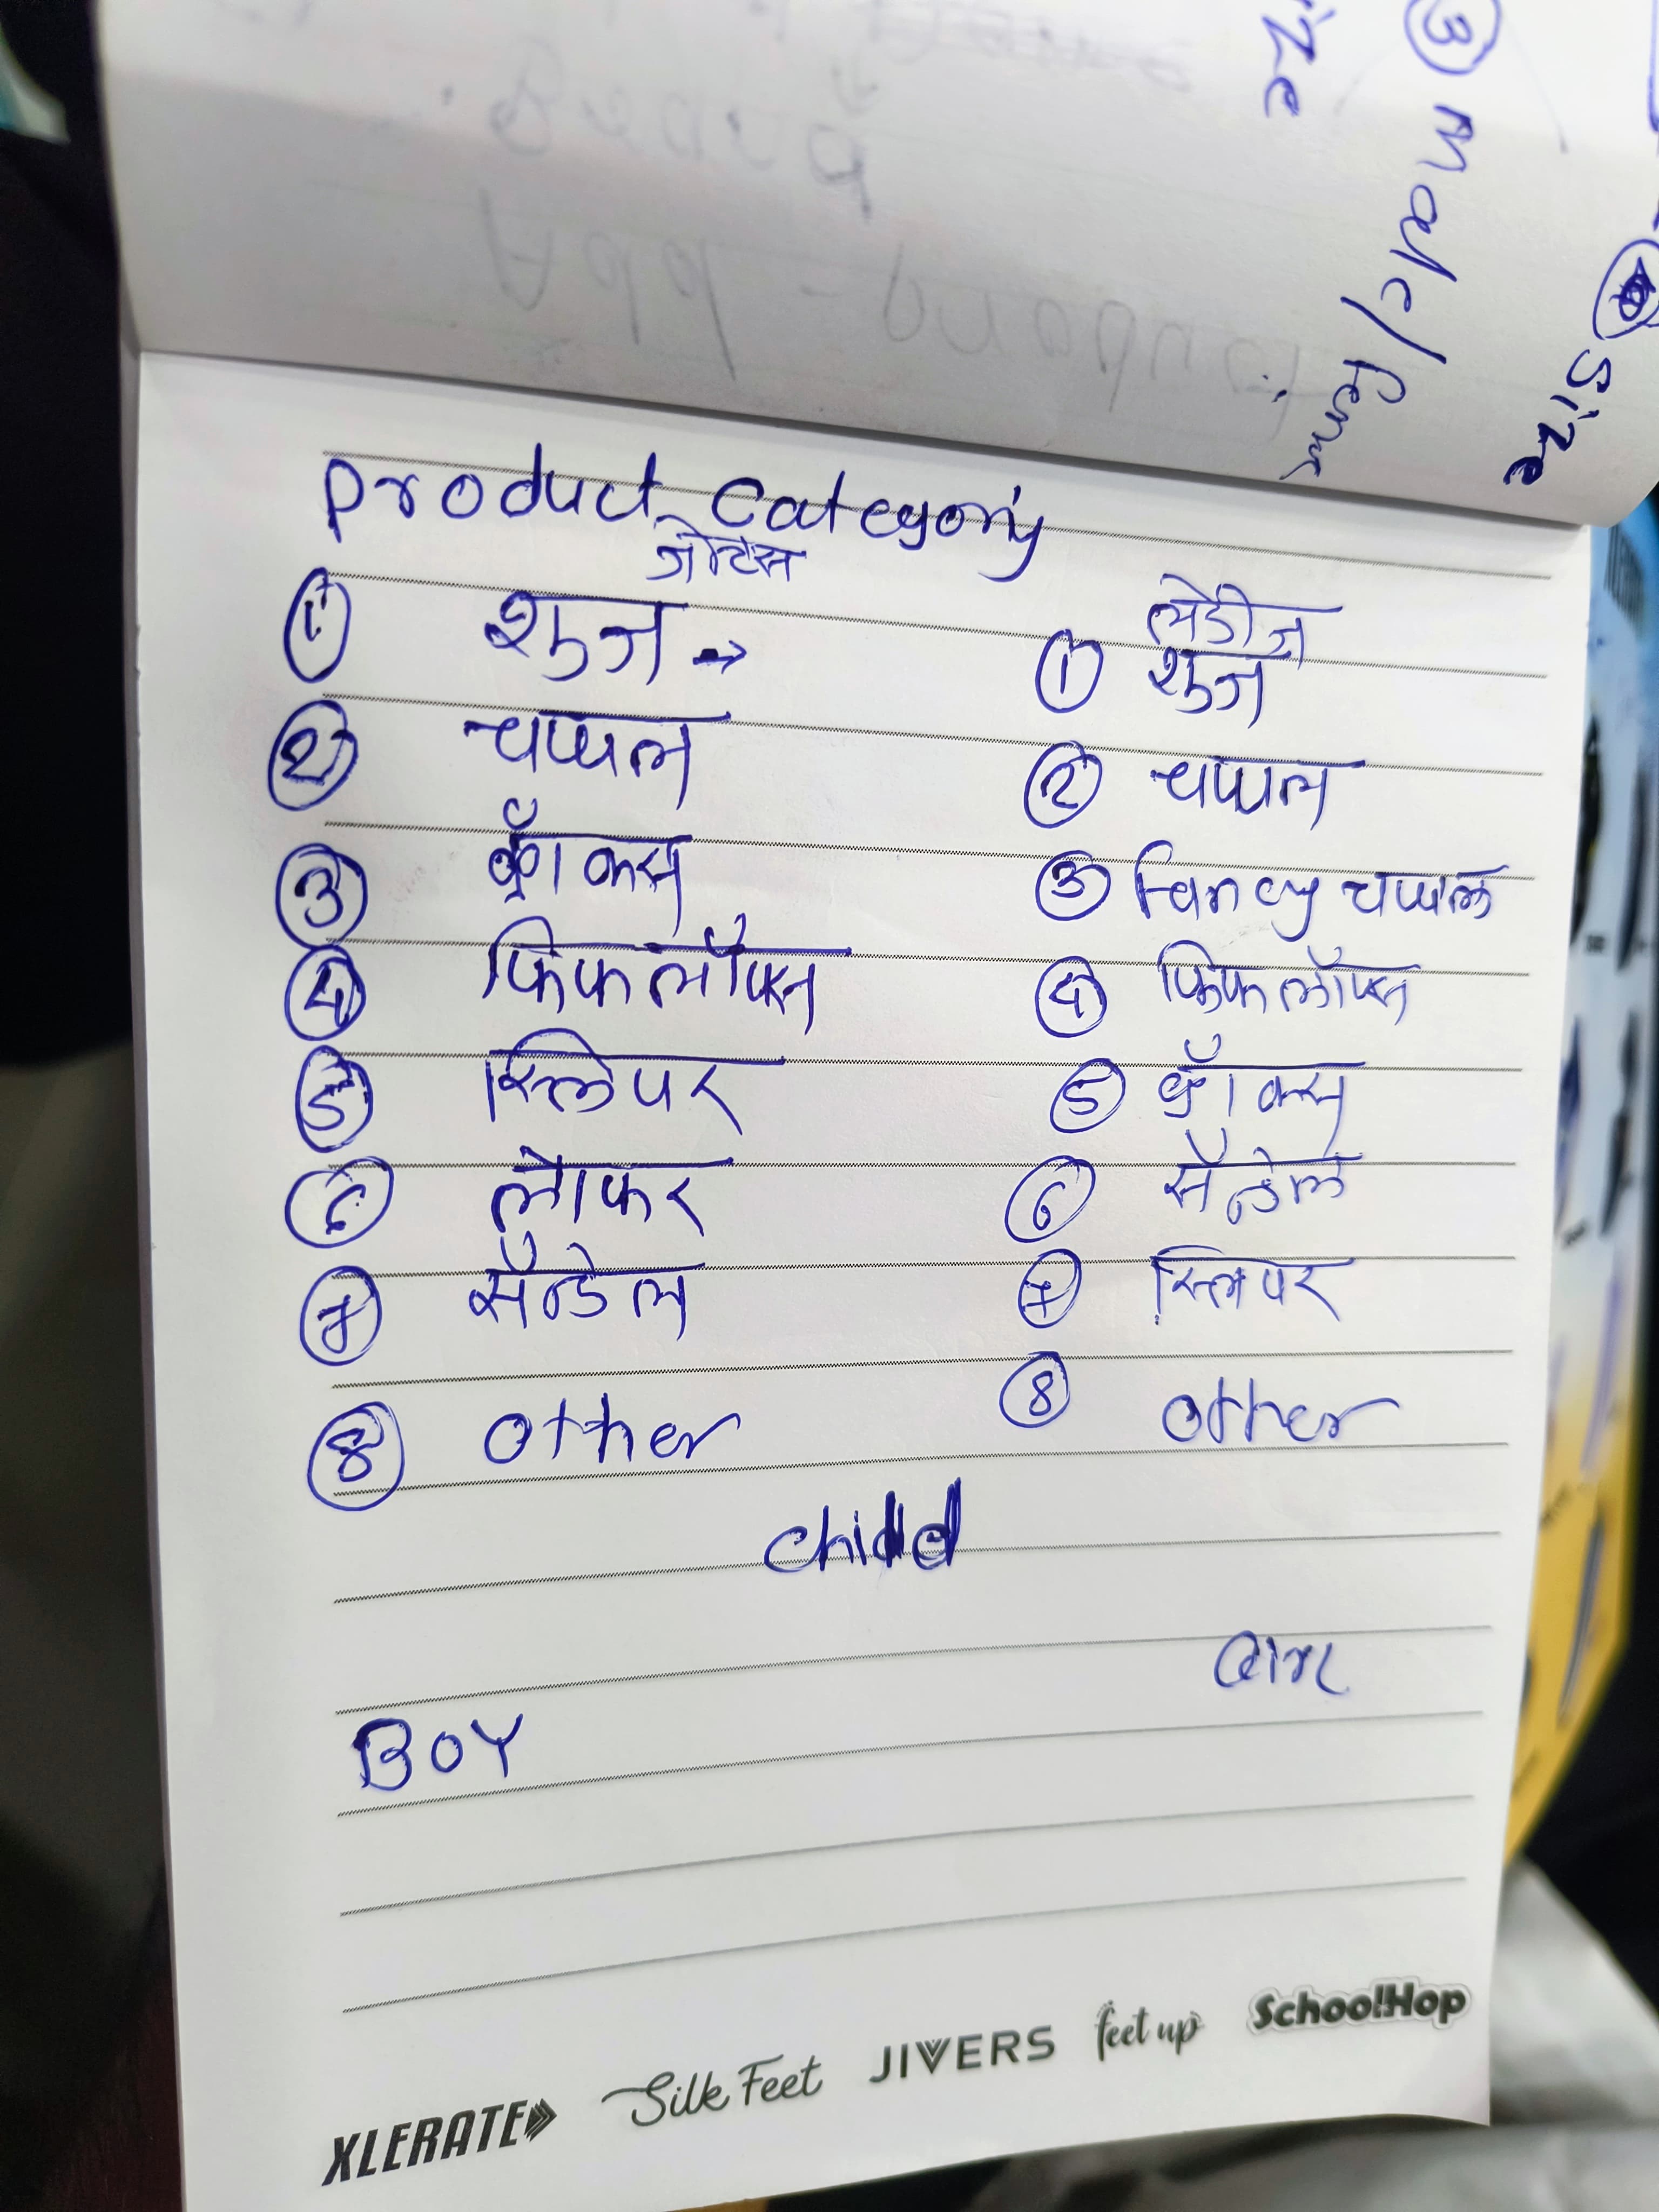 ize
③ Male/
Size
Product Category
जेन्टस
① शुज →
② चप्पल
③ क्रॉक्स
④ फिफलॉप्स
⑤ स्लिपर
⑥ लोफर
⑦ सॅन्डेल
⑧ other
लेडीज
① शुज
② चप्पल
③ Fancy चप्पल
④ फिफलॉप्स
⑤ क्रॉक्स
⑥ सॅन्डेल
⑦ स्लिपर
⑧ other
child
Girl
BOY
XLERATE Silk Feet JIVERS feet up SchoolHop